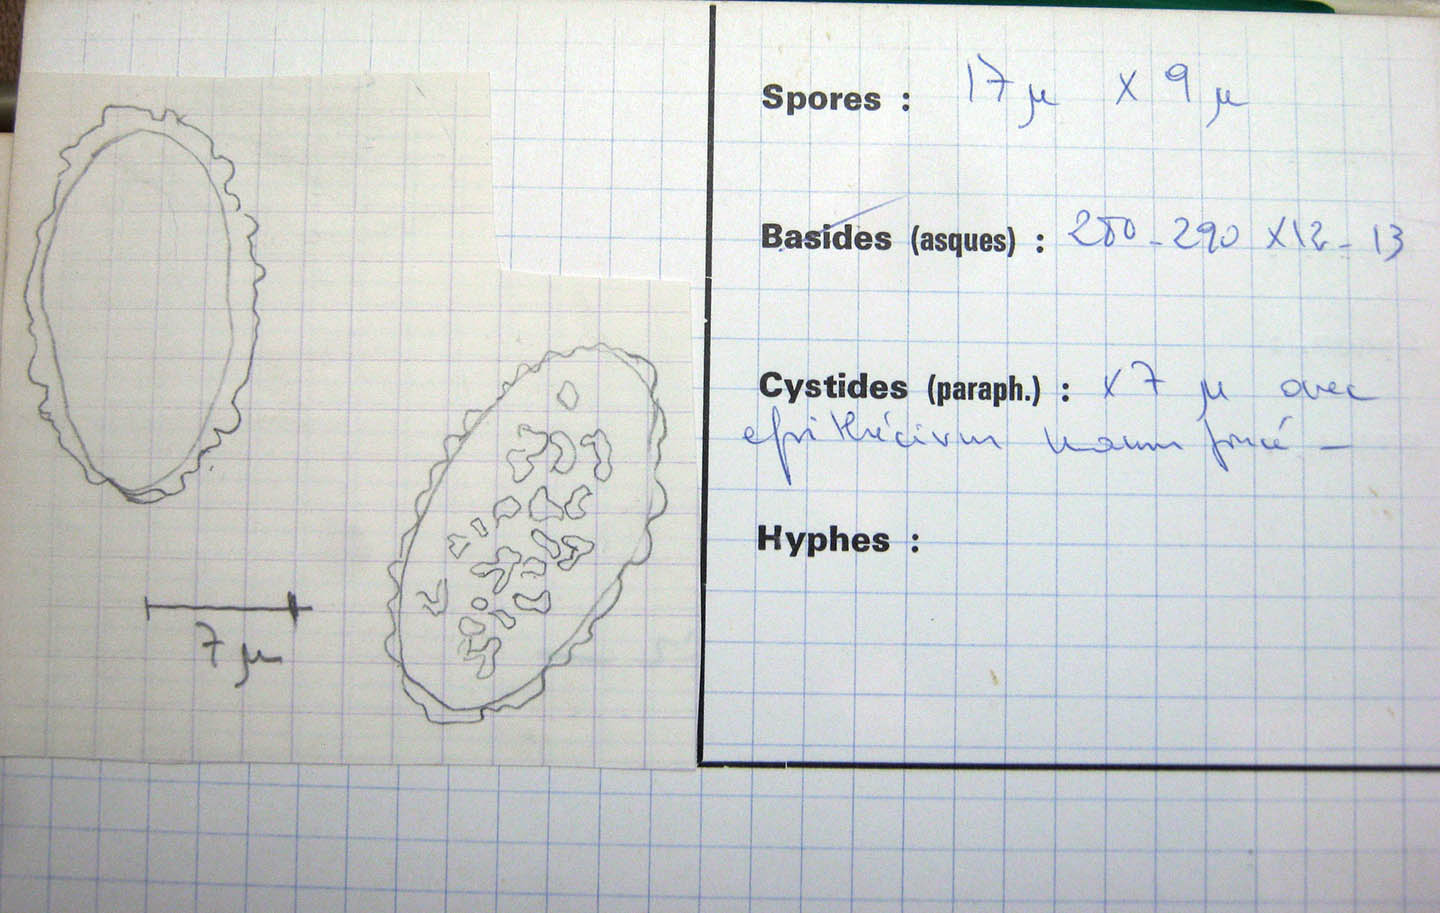 Spores : 17 µ X 9 µ
Basides (asques) : 280 - 290 X 12 - 13
Cystides (paraph.) : x 7 µ avec
epithécium foncé -
Hyphes :
7 µ